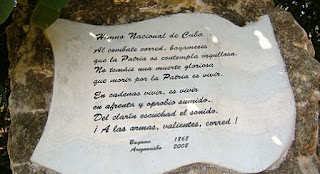 Himno Nacional de Cuba
Al combate corred, bayameses
que la Patria os contempla orgullosa.
No temáis una muerte gloriosa
que morir por la Patria es vivir.
En cadenas vivir, es vivir
en afrenta y oprobio sumido.
Del clarín escuchad el sonido.
¡A las armas, valientes, corred!
Bayamo 1868
2008